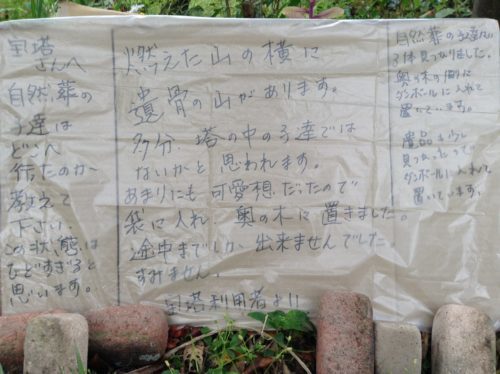 宝塔
さんへ
自然葬の
子達は
どこへ
行たのか
教えて
下さい。
この状態は
ひどすぎると
思います。
燃えた山の横に
遺骨の山があります。
多分、塔の中の子達では
ないかと思われます。
あまりにも可愛想だったので
袋に入れ 奥の木に置きました。
途中までしか出来ませんでした。
すみません。
宝塔利用者より
自然葬の子達
体見つかりました。
奥の木の
ダンボールに入れて
置いています。
置品も少し
見つかったので
ダンボールに入れて
置いています。